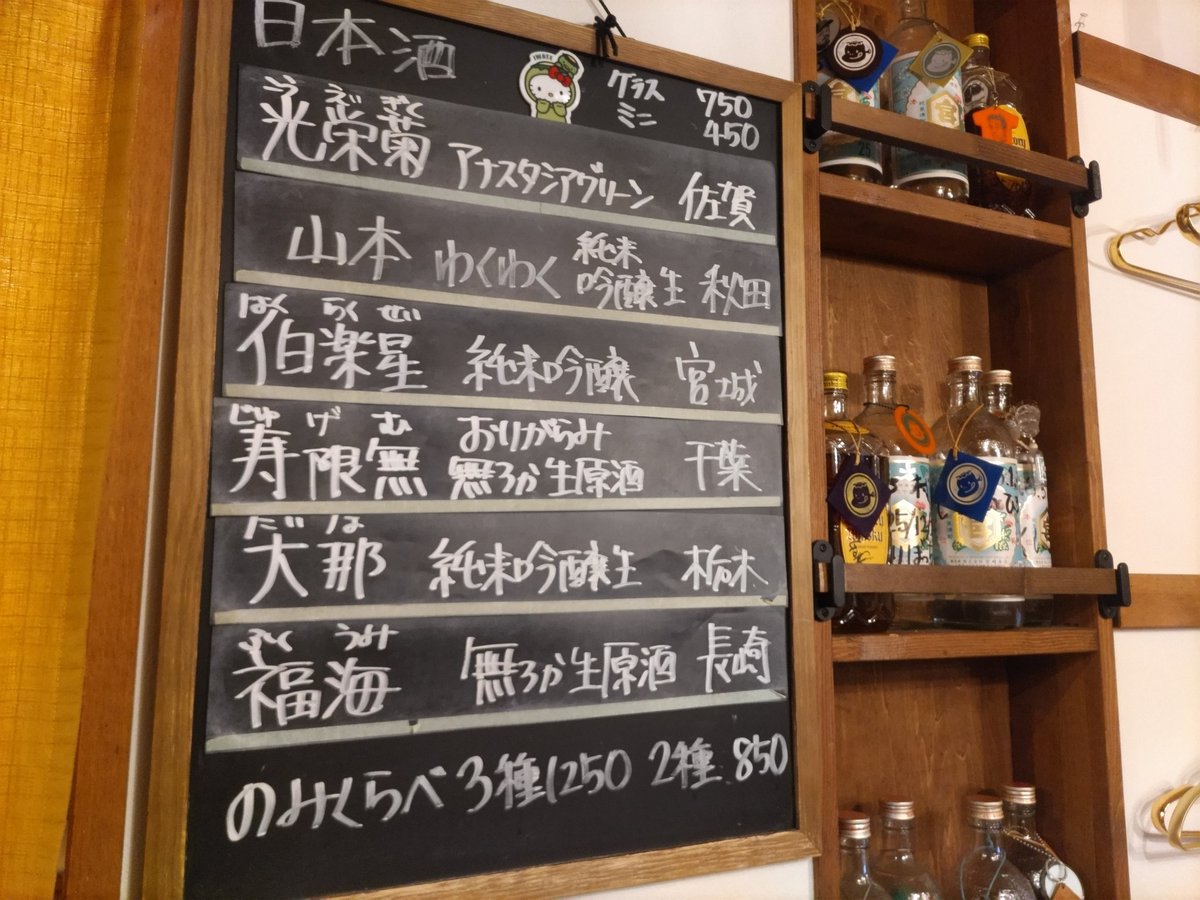 日本酒
IWATE
グラス 750
ミニ 450
こうえいぎく
光栄菊 アナスタシアグリーン 佐賀
山本 わくわく 純米吟醸生 秋田
はくらくせい
伯楽星 純米吟醸 宮城
じゅげむ
寿限無 おりがらみ 無ろか生原酒 千葉
だいな
大那 純米吟醸生 栃木
ふくうみ
福海 無ろか生原酒 長崎
のみくらべ 3種1250 2種 850